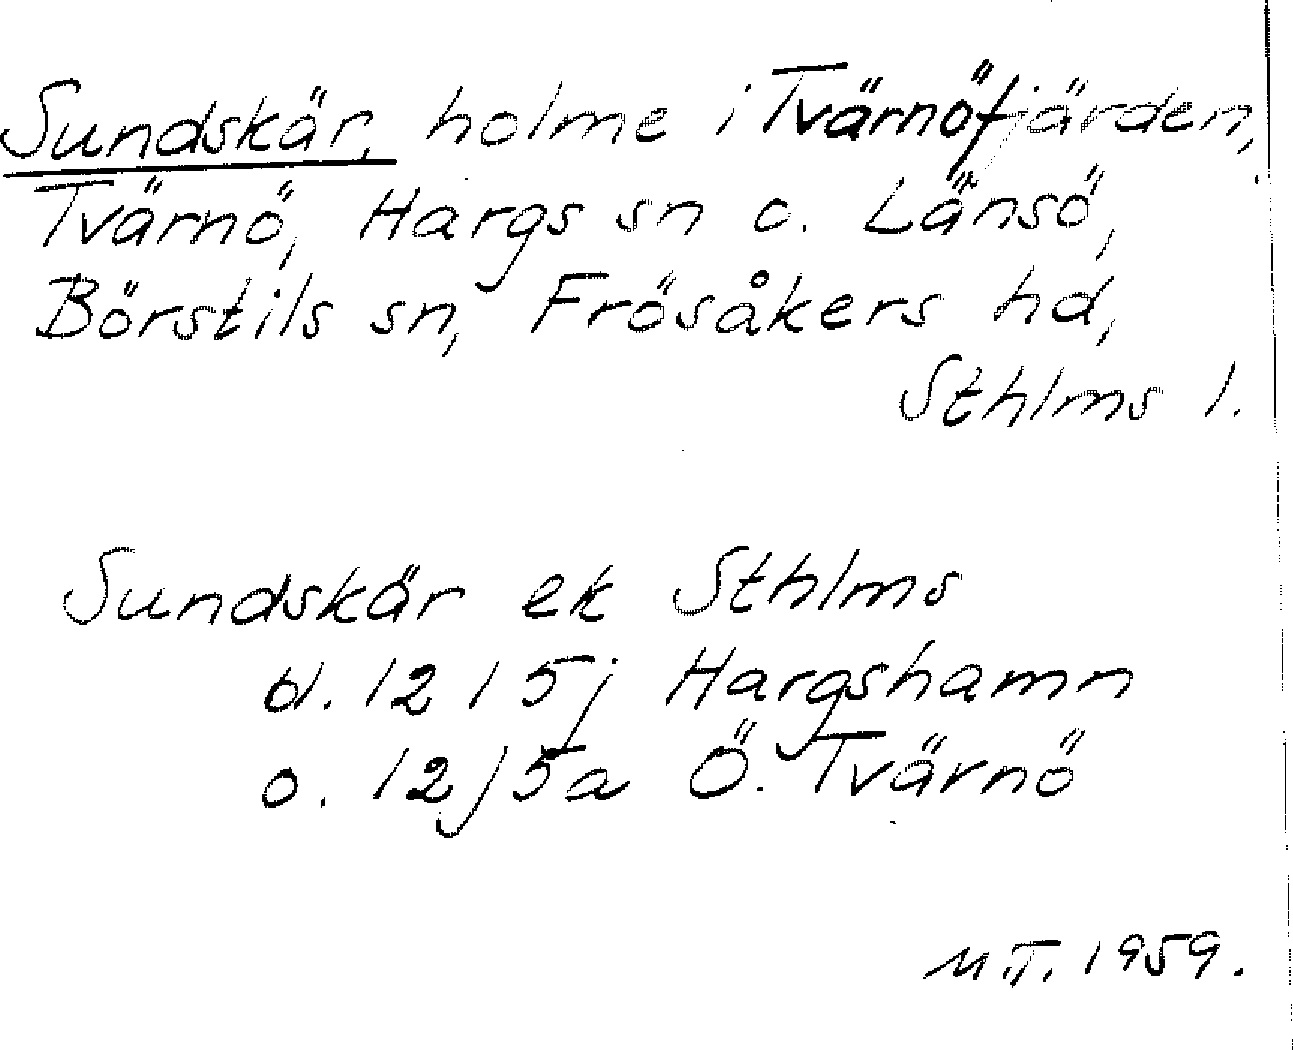 Sundskär, holme i Tvärnöfjärden,
Tvärnö, Hargs sn o. Länsö,
Börstils sn, Frösåkers hd,
Sthlms l.
Sundskär ek Sthlms
bl. 12 I 5j Hargshamn
o. 12 J 5a Ö. Tvärnö
M.T. 1959.